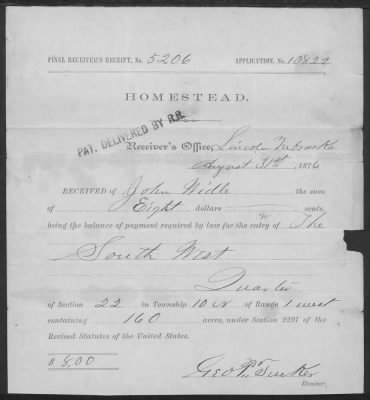 FINAL RECEIVER'S RECEIPT, No. 5206 APPLICATION, No. 10822
HOMESTEAD.
PAT. DELIVERED BY R.R.
Receiver's Office, Lincoln Nebraska
August 31st 1876
RECEIVED of John Widle the sum
of Eight dollars cents,
being the balance of payment required by law for the entry of The
South West
Quarter
of Section 22 in Township 10 N of Range 1 West
containing 160 acres, under Section 2291 of the
Revised Statutes of the United States.
$ 8.00
Geo. P. Tucker
Receiver.